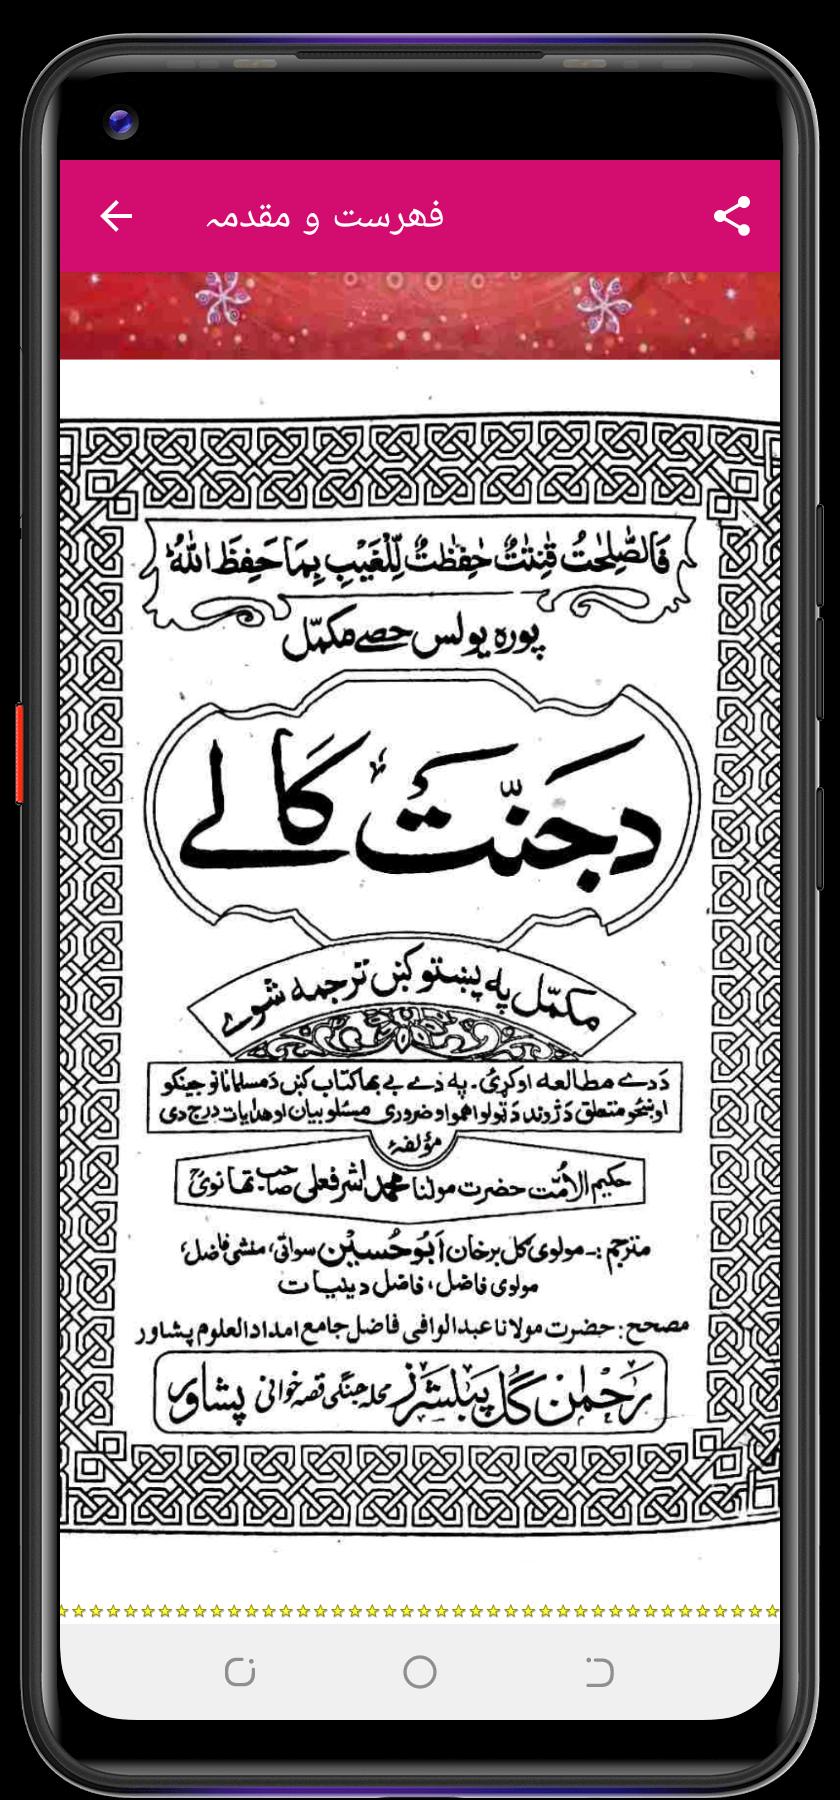 فهرست و مقدمہ
فَالصّٰلِحٰتُ قٰنِتٰتٌ حٰفِظٰتٌ لِّلْغَيْبِ بِمَا حَفِظَ اللّٰهُ
پوره یولس حصے مکمّل
دجَنّتْ کالے
مکمّل په پښتو کښ ترجمه شوے
دَ دے مطالعه اوکړئ۔ په دے بے بها کتاب کښ دَ مسلمانانو جینکو
او ښځو متعلق دَ ژوند دَ ټولو اهمو او ضروری مسئلو بیان او هدایات درج دی
مؤلفهٔ
حکیم الاُمّت حضرت مولٰنا محمد اشرفعلی صاحب تھانویؒ
مترجم :۔ مولوی گل برخان اَبُوحُسین سواتی، منشی فاضل،
مولوی فاضل، فاضل دینیات
مصحح: حضرت مولانا عبدالوافی فاضل جامع امداد العلوم پشاور
رَحمٰن گُل پَبلشرز محله جنگی قصه خوانی پشاور